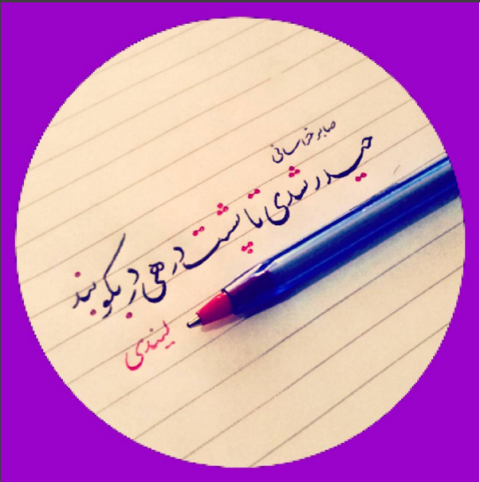 صابر خراسانی
حیدر شدی تا پشت در هی در بکوبند
لیندی